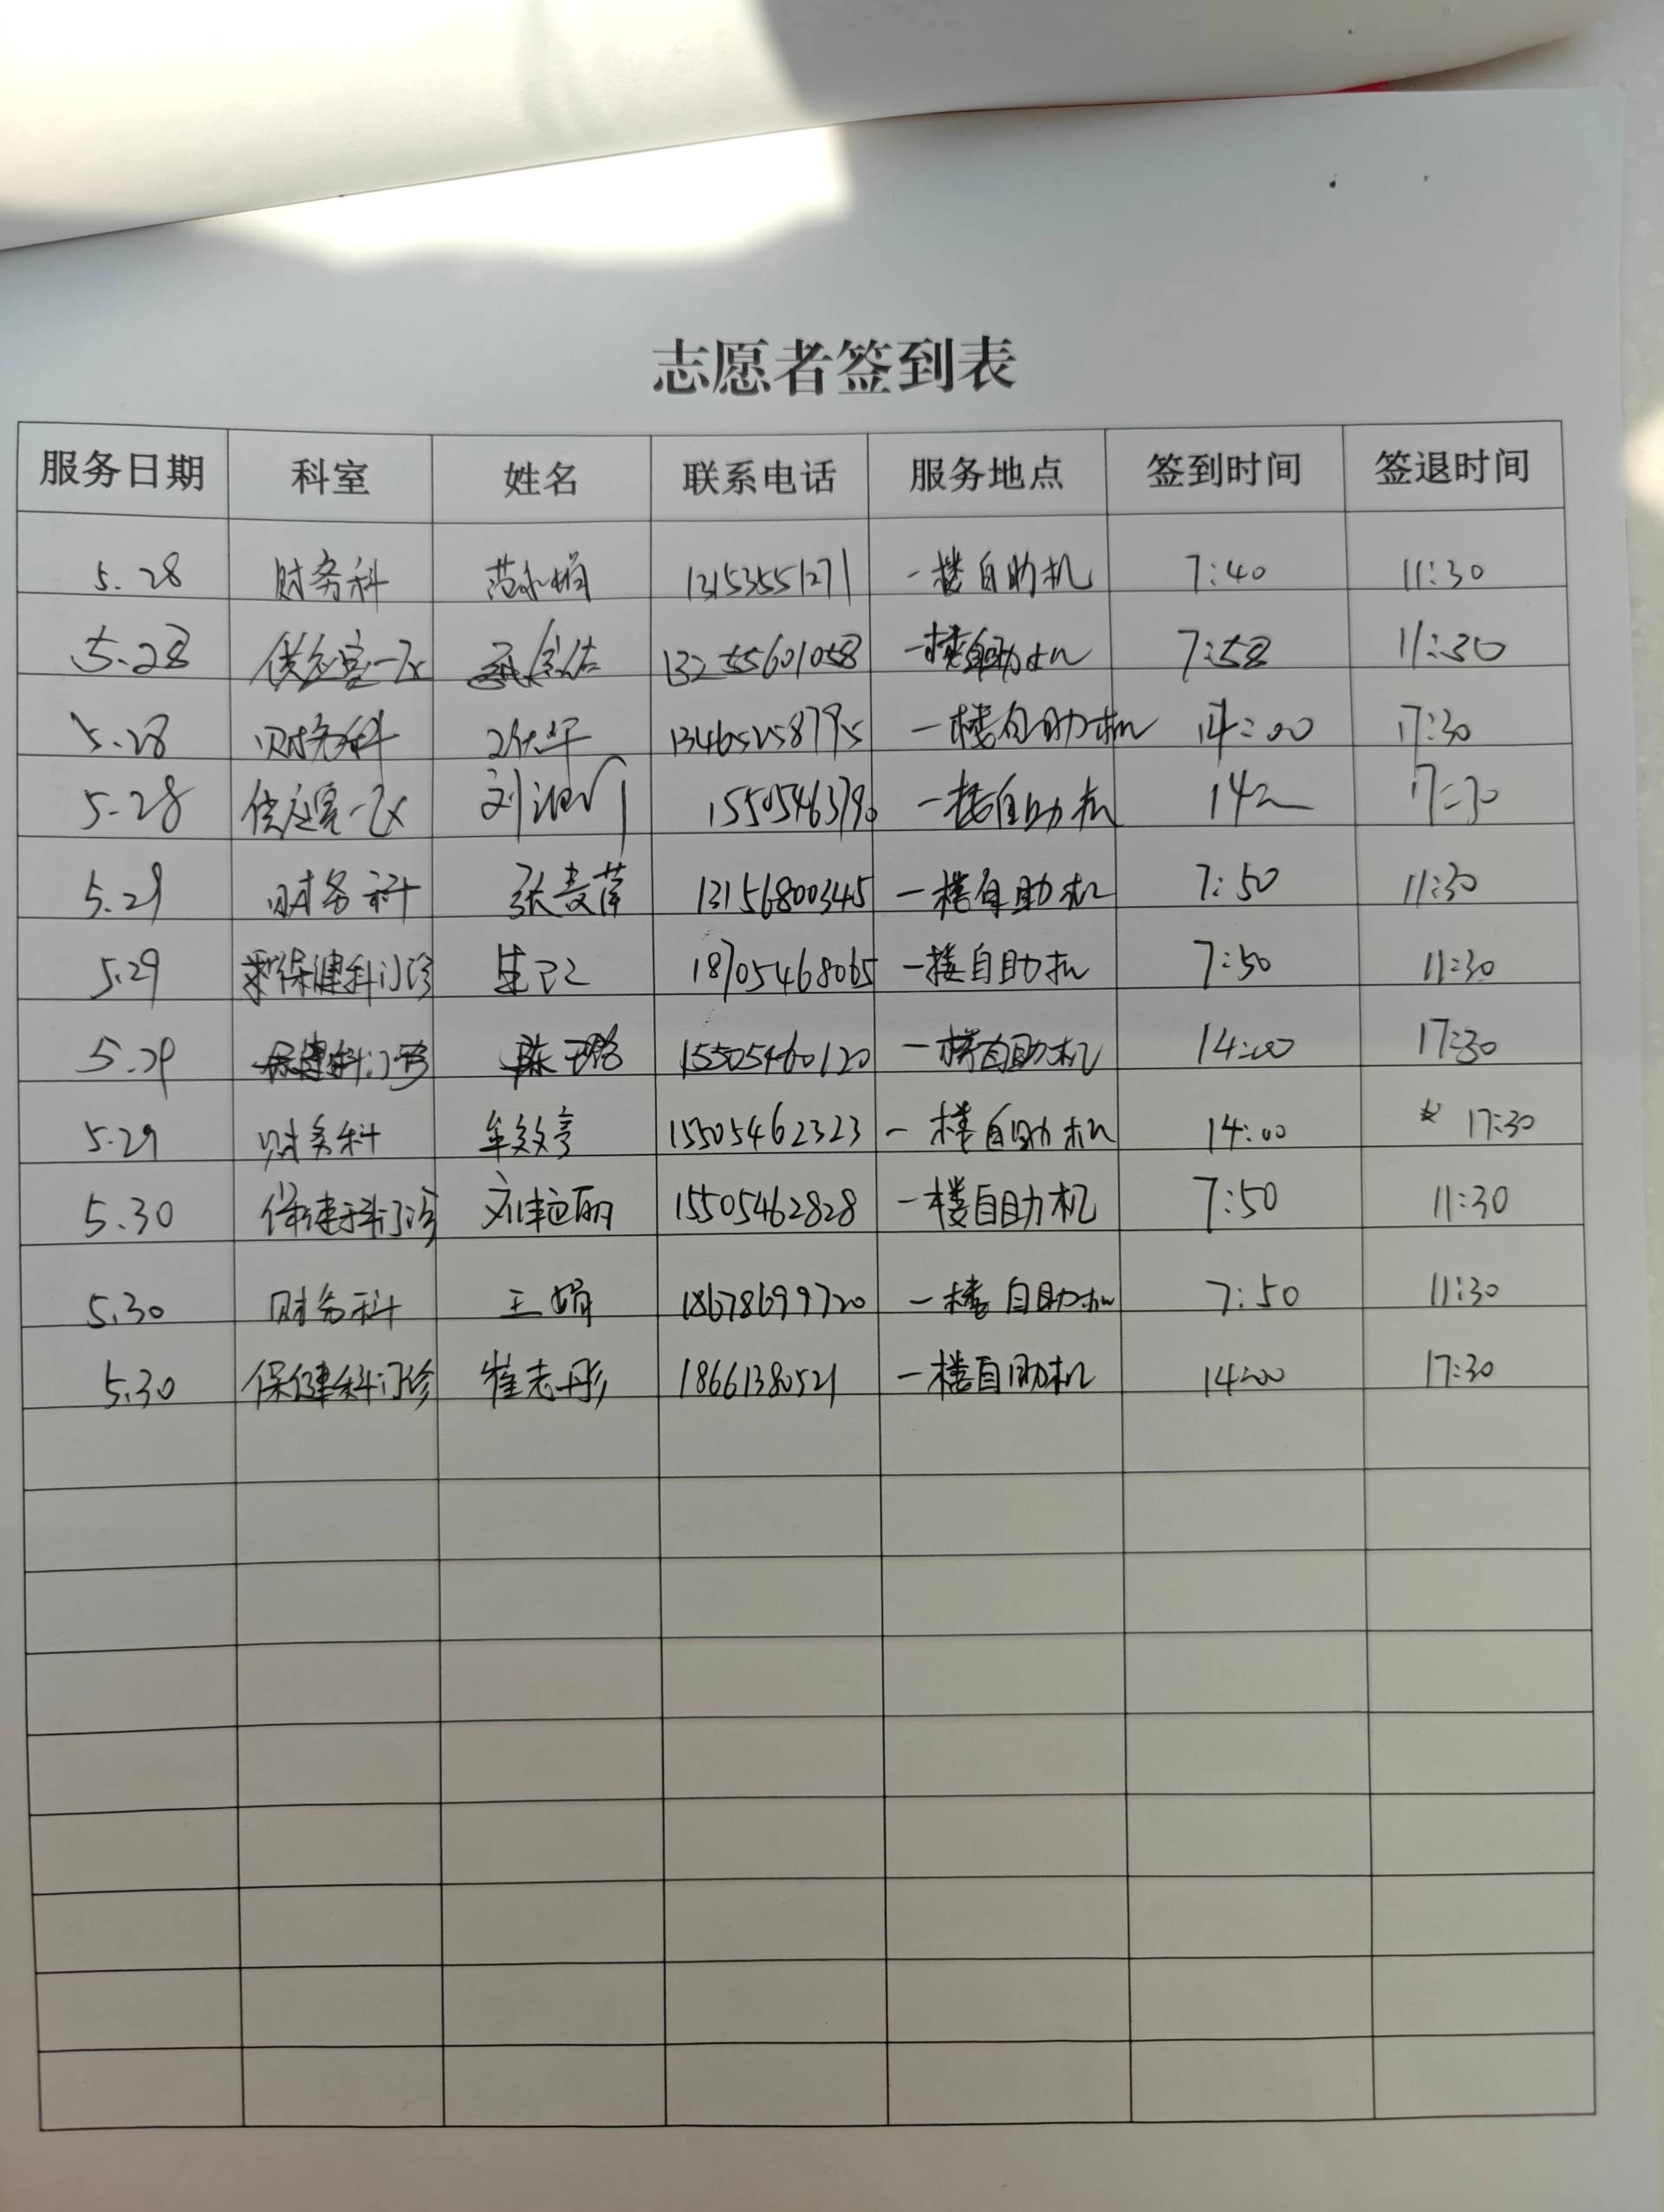 志愿者签到表
服务日期 科室 姓名 联系电话 服务地点 签到时间 签退时间
5.28 财务科 13153551271 一楼自助机 7:40 11:30
5.28 供应室一区 13255601058 一楼自助机 7:58 11:30
5.28 财务科 13465258795 一楼自助机 14:00 17:30
5.28 供应室一区 15505463790 一楼自助机 17:30
5.29 财务科 13156800345 一楼自助机 7:50 11:30
5.29 保健科门诊 18705468065 一楼自助机 7:50 11:30
5.29 保健科门诊 15505460120 一楼自助机 14:00 17:30
5.29 财务科 牟效亭 15505462323 一楼自助机 14:00 17:30
5.30 保健科门诊 刘艳丽 15505462828 一楼自助机 7:50 11:30
5.30 财务科 王娟 18678699720 一楼自助机 7:50 11:30
5.30 保健科门诊 崔志彤 18661380521 一楼自助机 14:00 17:30